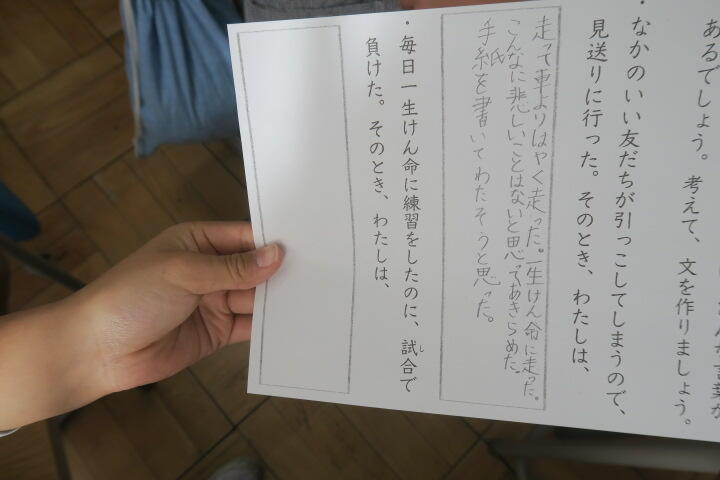 あるでしょう。考えて、文を作りましょう。
・なかのいい友だちが引っこしてしまうので、
見送りに行った。そのとき、わたしは、
走って車よりはやく走った。一生けん命に走った。
こんなに悲しいことはないと思ってあきらめた。
手紙を書いてわたそうと思った。
・毎日一生けん命に練習をしたのに、試合で
負けた。そのとき、わたしは、